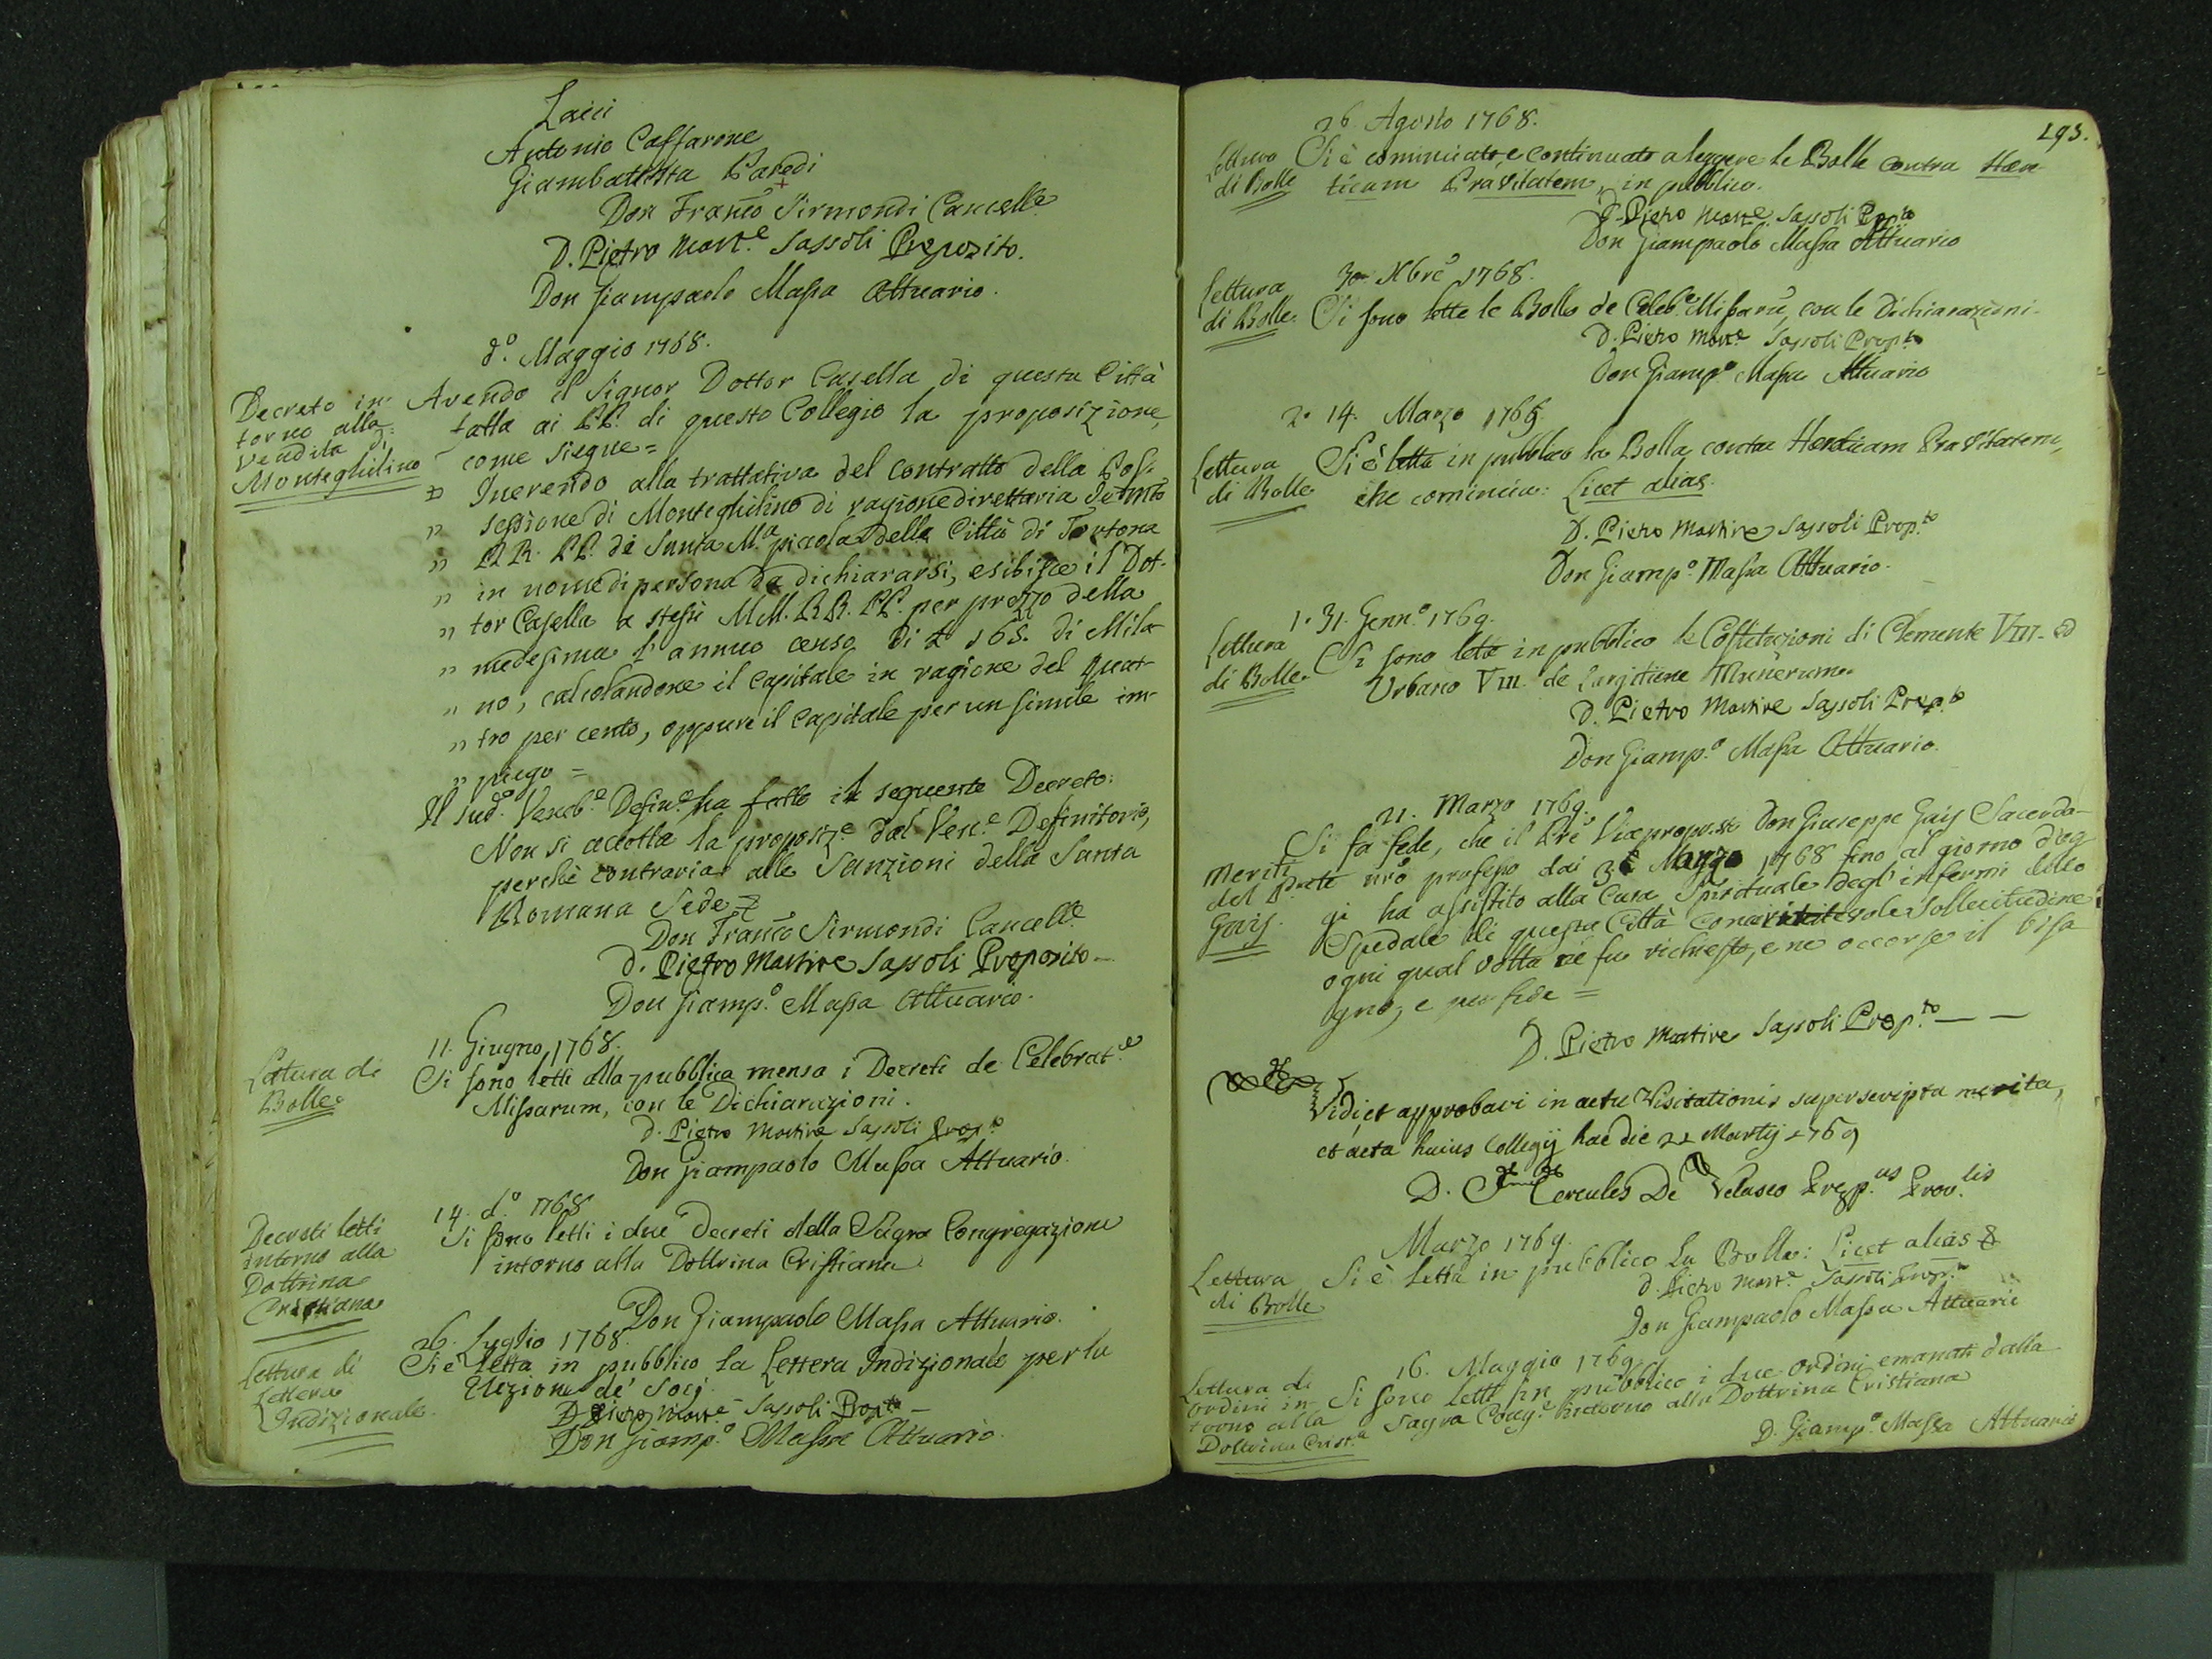 Laici
Antonio Caffarone
Giambattista Paredi
Don Franco Sirmondi Cancelle
D. Pietro Mart.e Sassoli Preposito.
Don Giampaolo Massa Attuario.
d.o Maggio 1768.
Decreto in-
torno alla
vendita di
Monteghilino
Avendo il Signor Dottor Casella di questa Città
fatta ai PP. di questo Collegio la proposizione,
come siegue =
" Inerendo alla trattativa del contratto della Pos-
" sessione di Monteghilino di ragione direttaria de
" RR. PP. di Santa M.a piccola della Città di Tortona
" in nome di persona da dichiararsi, esibisce il Dot-
" tor Casella a stessi MM. RR. PP. per prezzo della
" medesima l'annuo censo di £ 165. di Mila-
" no, calcolandone il capitale in ragione del quat-
" tro per cento, oppure il capitale per un simile im-
" piego =
Il sud.o Veneb.e Defin.o ha fatto il seguente Decreto:
Non si accetta la proposiz.e dal Ven.e Definitorio,
perchè contraria alle Sanzioni della Santa
Romana Sede
Don Franco Sirmondi Cancell.e
D. Pietro Martire Sassoli Preposito
Don Giamp.o Massa Attuario.
Lettura di
Bolle
11. Giugno, 1768.
Si sono letti alla pubblica mensa i Decreti de Celebrat.e
Missarum, con le Dichiarazioni.
D. Pietro Martire Sassoli Prep.to
Don Giampaolo Massa Attuario.
Decreti letti
intorno alla
Dottrina
Cristiana
14. d.o 1768
Si sono letti i due Decreti della Sagra Congregazione
intorno alla Dottrina Cristiana
Don Giampaolo Massa Attuario.
Lettura di
Lettera
Indizionale.
26. Luglio 1768.
Si è letta in pubblico la Lettera Indizionale per la
Elezione de' Socj.
D. Pietro Mart.e Sassoli Prop.to
Don Giamp.o Massa Attuario.
193.
26. Agosto 1768.
Lettura
di Bolle
Si è cominciato, e continuato a leggere le Bolle contra Hære
ticam Pravitatem, in pubblico.
D. Pietro Mart.e Sassoli Prop.to
Don Giampaolo Massa Attuario
30. Xbre 1768.
Lettura
di Bolle.
Si sono lette le Bolle de Celeb.e Missarū, con le Dichiarazioni.
D. Pietro Mart.e Sassoli Prep.to
Don Giamp.o Massa Attuario
2. 14. Marzo 1769
Lettura
di Bolle
Si è letta in pubblico la Bolla contra Hæreticam Pravitatem,
che comincia: Licet alias.
D. Pietro Martire Sassoli Prop.to
Don Giamp.o Massa Attuario.
1. 31. Genn.o 1769.
Lettura
di Bolle.
Si sono lette in pubblico le Costituzioni di Clemente VIII. ed
Urbano VIII. de Largitione Munerum.
D. Pietro Martire Sassoli Prep.to
Don Giamp.o Massa Attuario.
21. Marzo 1769.
Meriti
del P.
Gays.
Si fa fede, che il Prē Viceproposto Don Giuseppe Gays Sacerdo-
te nrō professo dai Marzo 1768 fino al giorno d'og
gi ha assistito alla Cura Spirituale degl'infermi dello
Spedale di questa Città con sollecitudine
ogni qual volta nè fu richiesto, e ne occorse il biso
gno, e per fede =
D. Pietro Martire Sassoli Prep.to
Vidi, et approbavi in actu Visitationis superscripta merita,
et acta huius Collegij hac die 22 Martij 1769
D. Hercules De Velasco Prep.us Prov.lis
Marzo 1769.
Lettura
di Bolle
Si è letta in pubblico la Bolla: Licet alias
D. Pietro Mart.e Sassoli Prep.to
Don Giampaolo Massa Attuario
16. Maggio 1769
Lettura di
Ordini in-
torno alla
Dottrina Crist.a
Si sono letti in pubblico i due Ordini emanati dalla
Sagra Cong.e intorno alla Dottrina Cristiana
D. Giamp.o Massa Attuario